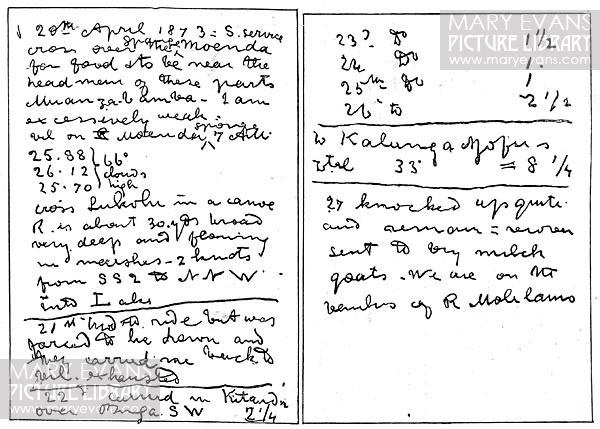 20th April 1873 = S. service
cross over the sponge Moenda
for food & to be near the
headmen of these parts
Muanza-bamba - I am
excessively weak -
vil on Moenda sponge 7 AM
25.88 66°
26.12 clouds
25.70 high
cross Lukolu in a canoe
R. is about 30 yds broad
very deep and flowing
in marshes - 2 knots
from SSE to NNW
into Lake
21st tryed to ride but was
forced to lie down and
they carried me back to
vil. exhausted
22d carried in Kitanda
over Buga SW 2 1/4
23d Do 1 1/2
24 Do 1
25th Do 1
26 to 2 1/2
to Kalunga Mofu's
total 33 = 8 1/4
27 knocked up quite
and remain = recover
sent to buy milch
goats. We are on the
banks of R Molilamo
MARY EVANS
PICTURE LIBRARY
www.maryevans.com
MARY EVANS
PICTURE LIBRARY
www.maryevans.com
MARY EVANS
PICTURE LIBRARY
www.maryevans.com